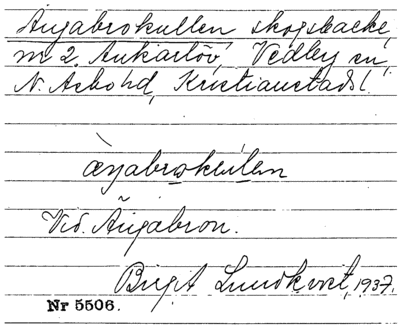 Ängabrokullen skogsbacke,
m 2. Ankarlöv, Vedby sn,
N. Åsbo hd, Kristianstads l.
æŋabrokɯlen
Vid Ängabron.
Birgit Lundkvist, 1937.
Nr 5506.